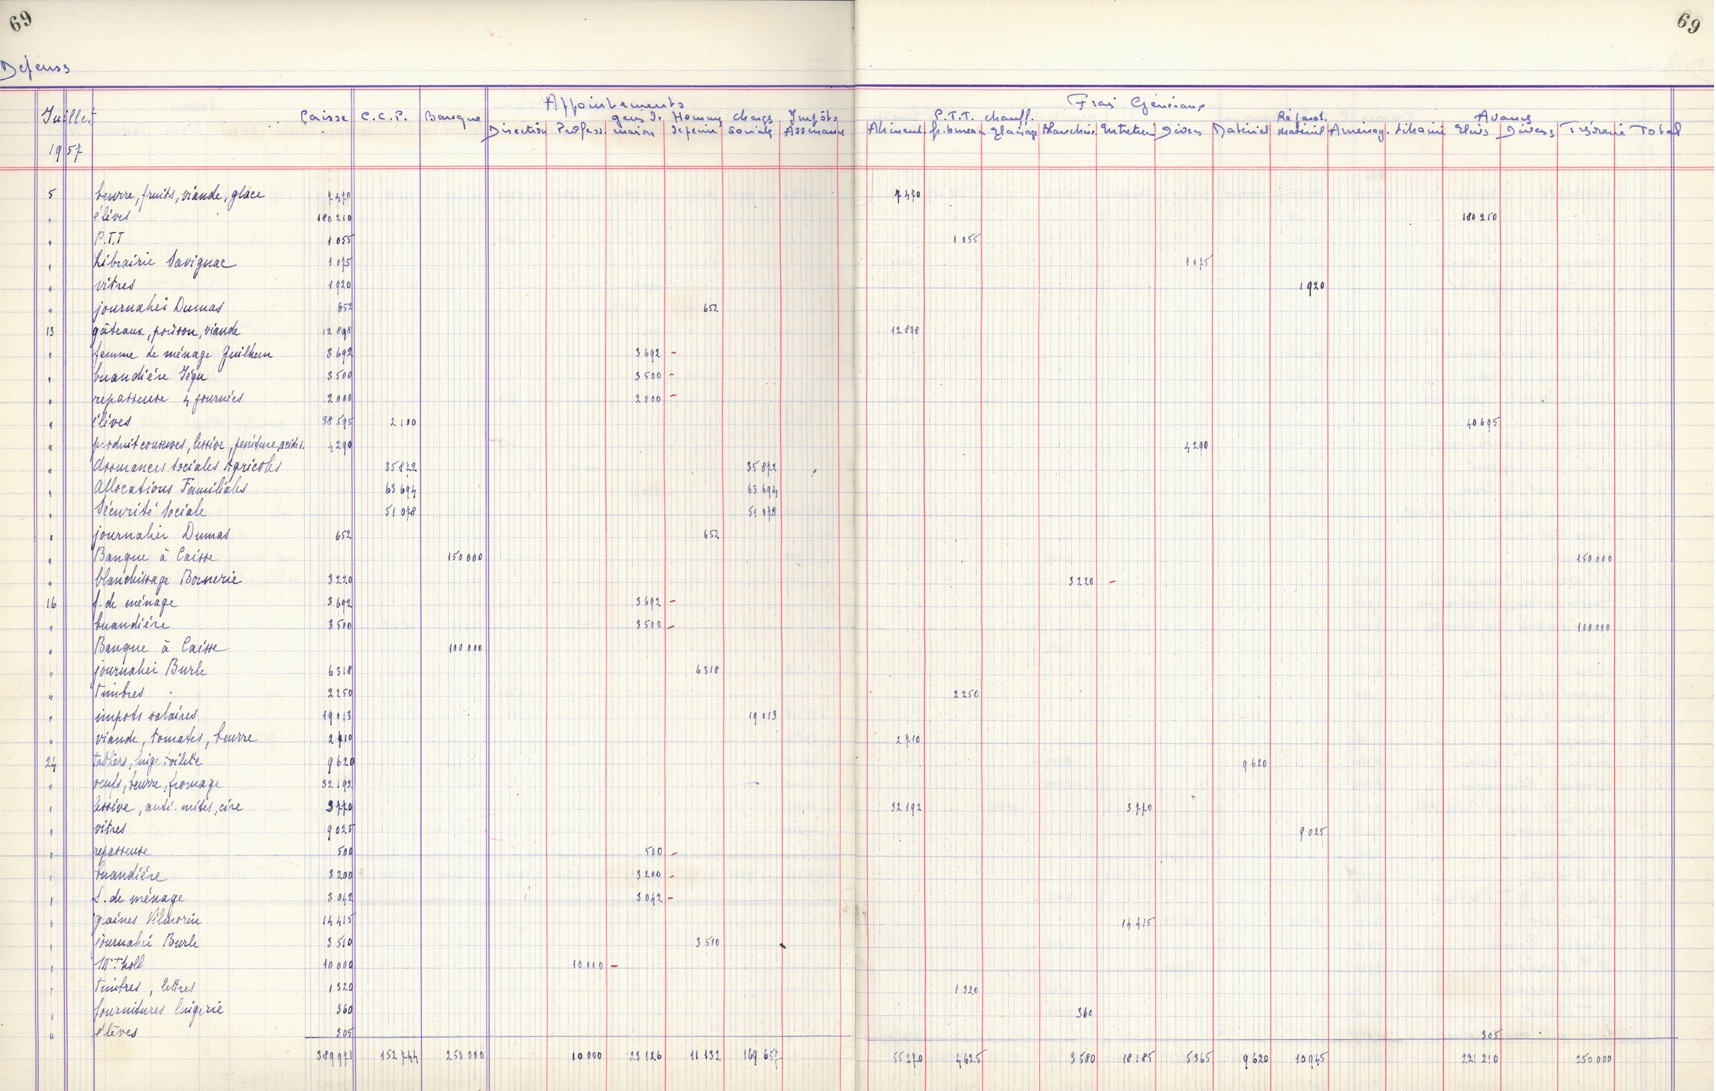 69
69
Dépenses
Juillet 1957 Caisse C.C.P. Banque Appointements Direction Profess. gens de maison Homme de peine charges sociales Impôts Assurances
Frais Généraux Aliment. P.T.T. fr. bureau chauff. éclairage Blanchis. Entretien Divers Matériel Réparat. matériel Aménag. Avances Elèves Divers Trésorerie Total
5 beurre, fruits, viande, glace 7470 7470
" élèves 180210 180210
" P.T.T 1055 1055
" Librairie Savignac 1075 1075
" vitres 1920 1920
" journalier Dumas 652 652
13 gâteaux, poisson, viande 12898 12898
" femme de ménage Guilhem 3692 3692 -
" buandière 3500 3500 -
" repasseuse 4 journées 2000 2000 -
" élèves 38595 2100 40695
" produit lessive, peinture, acide 4290 4290
" Assurances Sociales Agricoles 35872 35872
" Allocations Familiales 63694 63694
" Sécurité Sociale 51078 51078
" journalier Dumas 652 652
" Banque à Caisse 150000 150000
" blanchissage Bonnerie 3220 3220 -
16 f. de ménage 3692 3692 -
" buandière 3500 3500 - 100.000
" Banque à Caisse 100.000
" journalier Burle 6318 6318
" Timbres 2250 2250
" impots salaires 19013 19013
" viande, tomates, beurre 2710 2710
24 tabliers, linge toilette 9620 9620
" oeufs, beurre, fromage 32192
" lessive, anti-mites, cire 3770 32192 3770
" vitres 9025 9025
" repasseuse 500 500 -
" buandière 3200 3200 -
" f. de ménage 3042 3042 -
" graines Vilmorin 14415 14415
" journalier Burle 3510 3510
" 10000 10000 -
" Timbres, lettres 1320 1320
" fournitures lingerie 360 360
" élèves 305 305
389971 152744 250000 10000 23126 11132 169657 55270 4625 3580 18185 5365 9620 10945 221210 250000